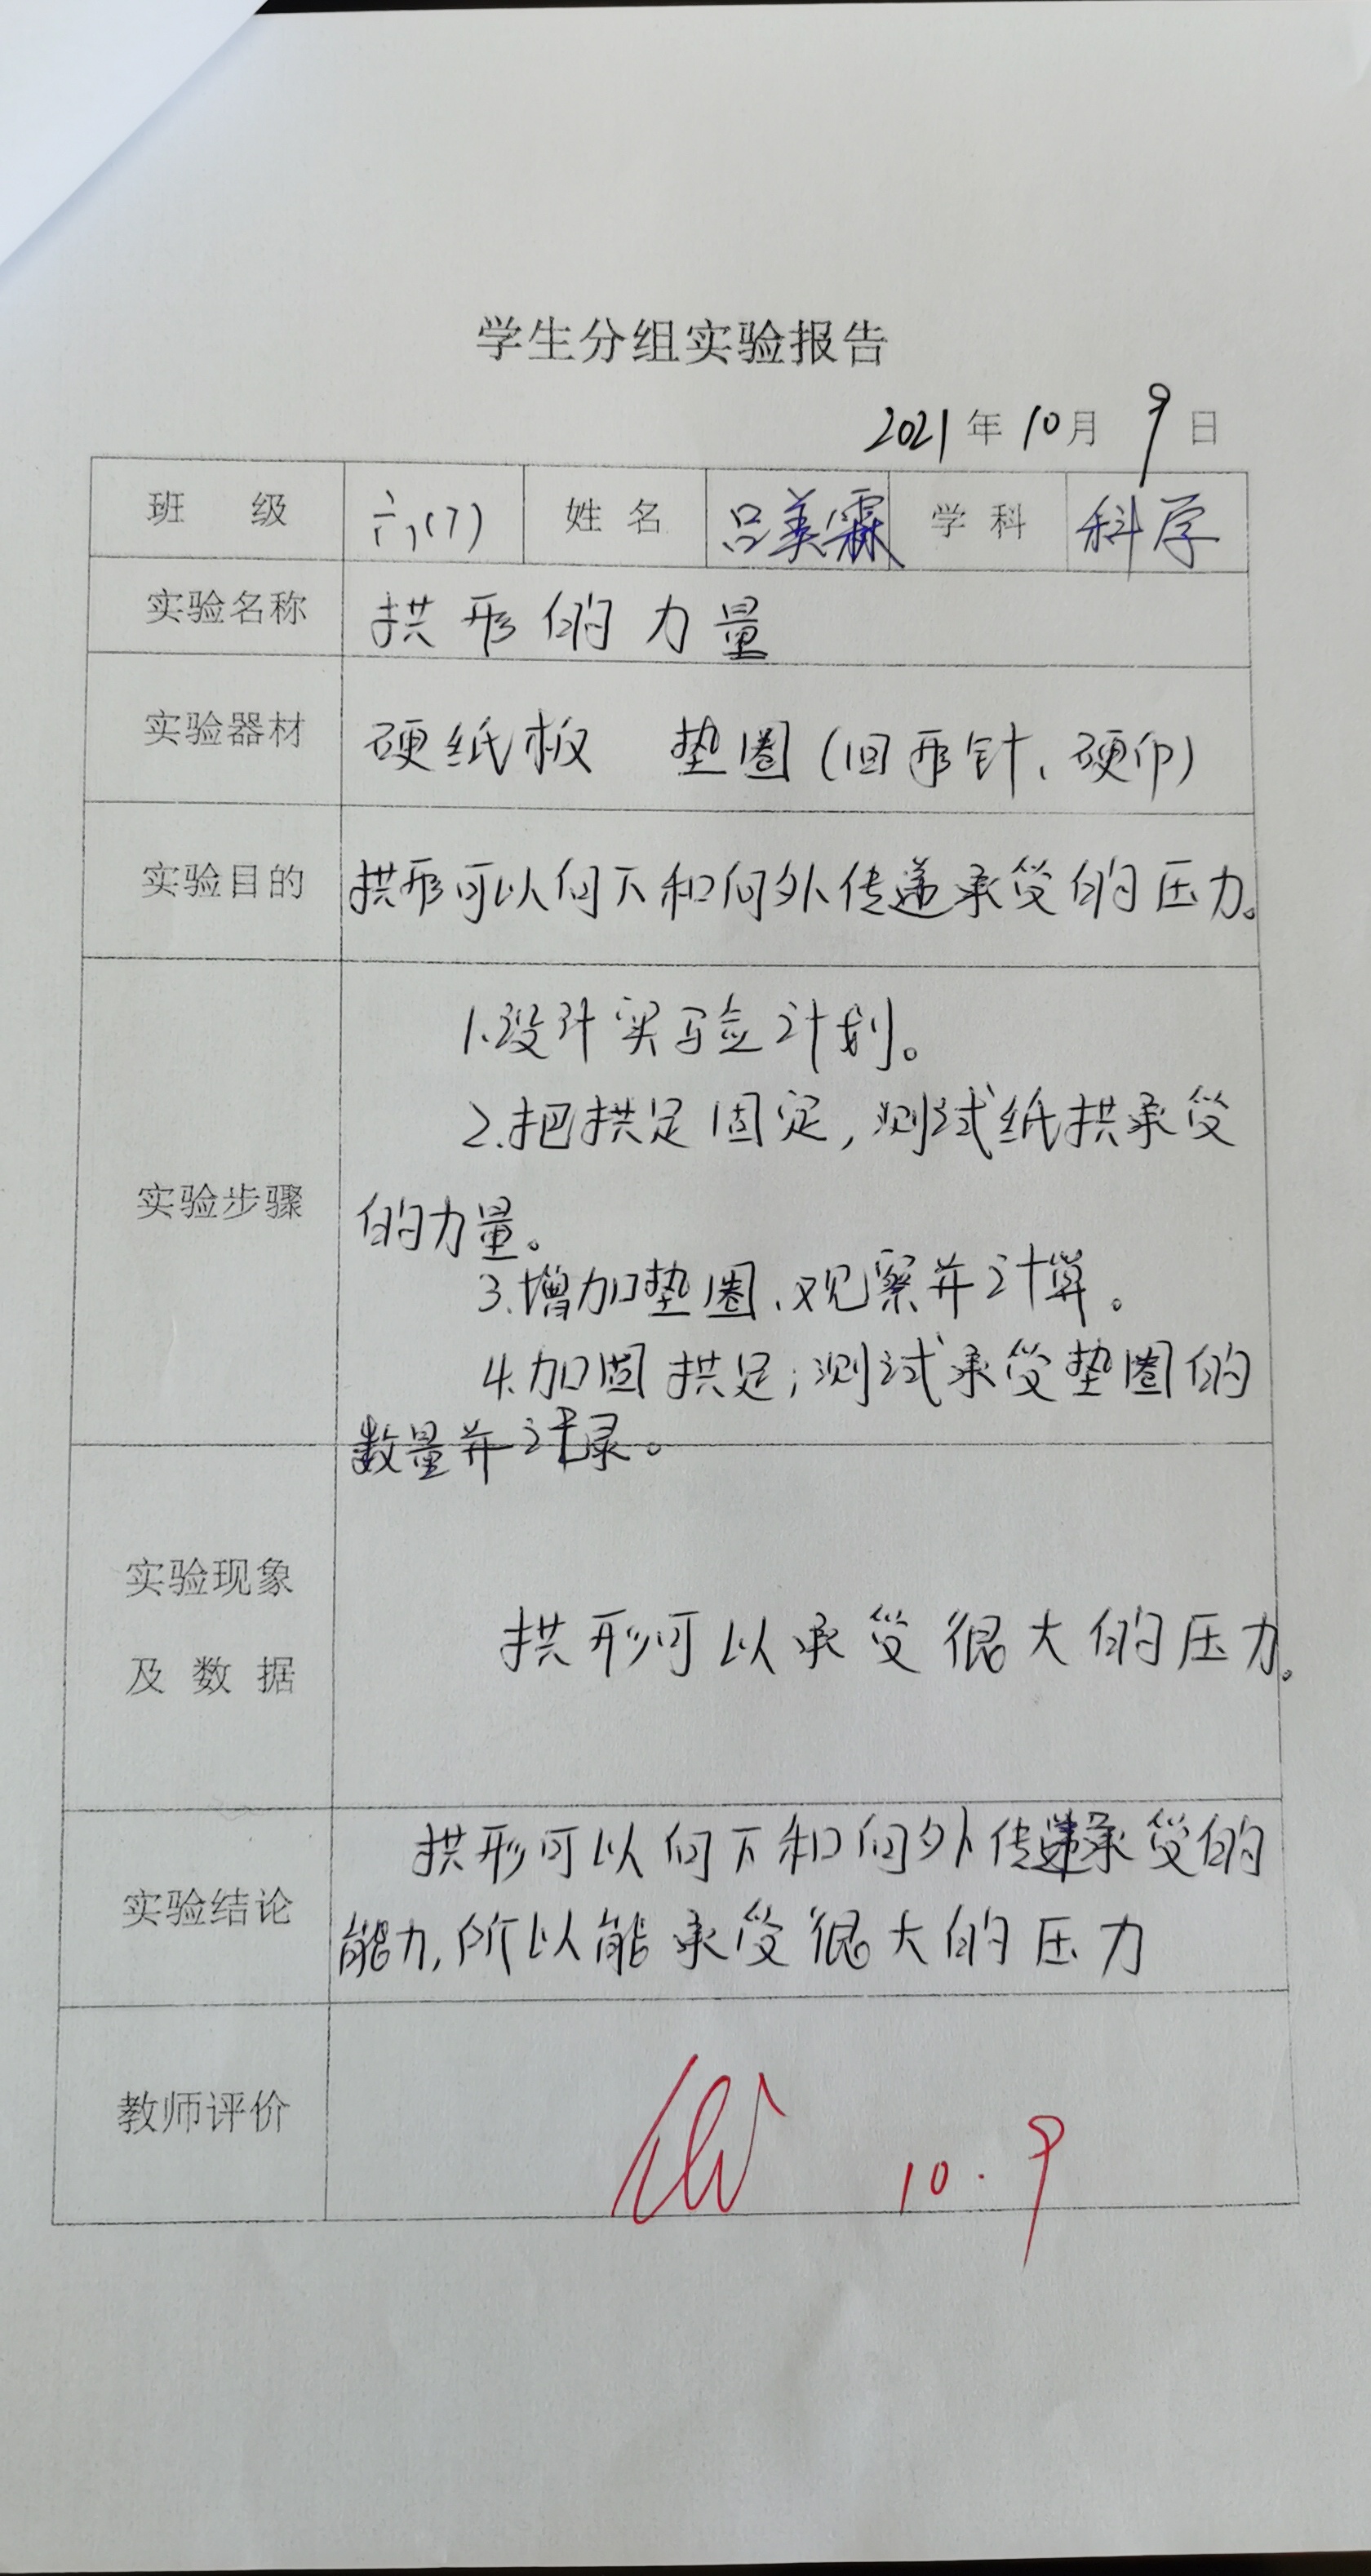 学生分组实验报告
2021年10月9日
班 级 六(7) 姓 名 吕美霖 学 科 科学
实验名称 拱形的力量
实验器材 硬纸板 垫圈(回形针、硬币)
实验目的 拱形可以向下和向外传递承受的压力。
1.设计实验计划。
2.把拱足固定,测试纸拱承受
实验步骤
的力量。
3.增加垫圈、观察并计算。
4.加固拱足;测试承受垫圈的
数量并记录。
实验现象
拱形可以承受很大的压力。
及 数 据
拱形可以向下和向外传递承受的
实验结论
能力,所以能承受很大的压力
教师评价
10.9